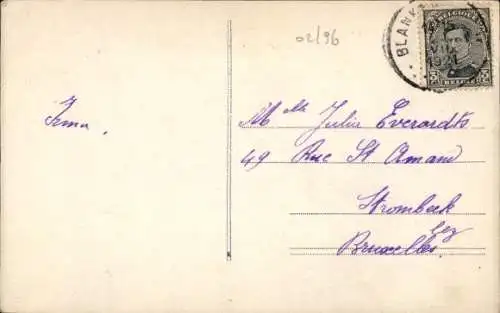 02/96
BLANK
1921
BELGIQUE
3 3
BELGIË
Irma.
Melle Julia Everardts
49 Rue St Amand
Strombeek
lez
Bruxelles.